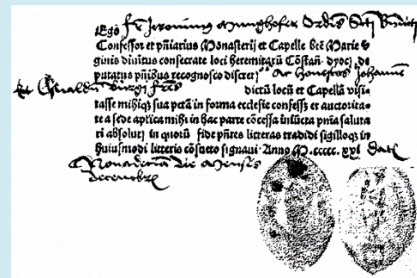 Ego fr Jeronimus Munghofer Ordīs Scti Bndicti
Confessor et pn̄iarius Monasterij et Capelle bt̄e Marie v
ginis diuitus consecrate loci heremitarū Cōstan̄. dyoc̄. de
putatus pn̄ibus recognosco discret) ac honestos Johannē
et Oswaldū fr̄es dictū locū et Capellā visi
tasse mihiq̄ sua pctā in forma ecclesie confessos et auctorita
te a sede apl̄ica mihi in hac parte cōcessa iniūcta pn̄ia saluta
ri absoluti in quorū fide pn̄tes litteras tradidi sigilloq̄ in
huiusmodi litteris cōsueto signaui. Anno M.ccccc.xxj. dat̄
die Mensis
decembr̄